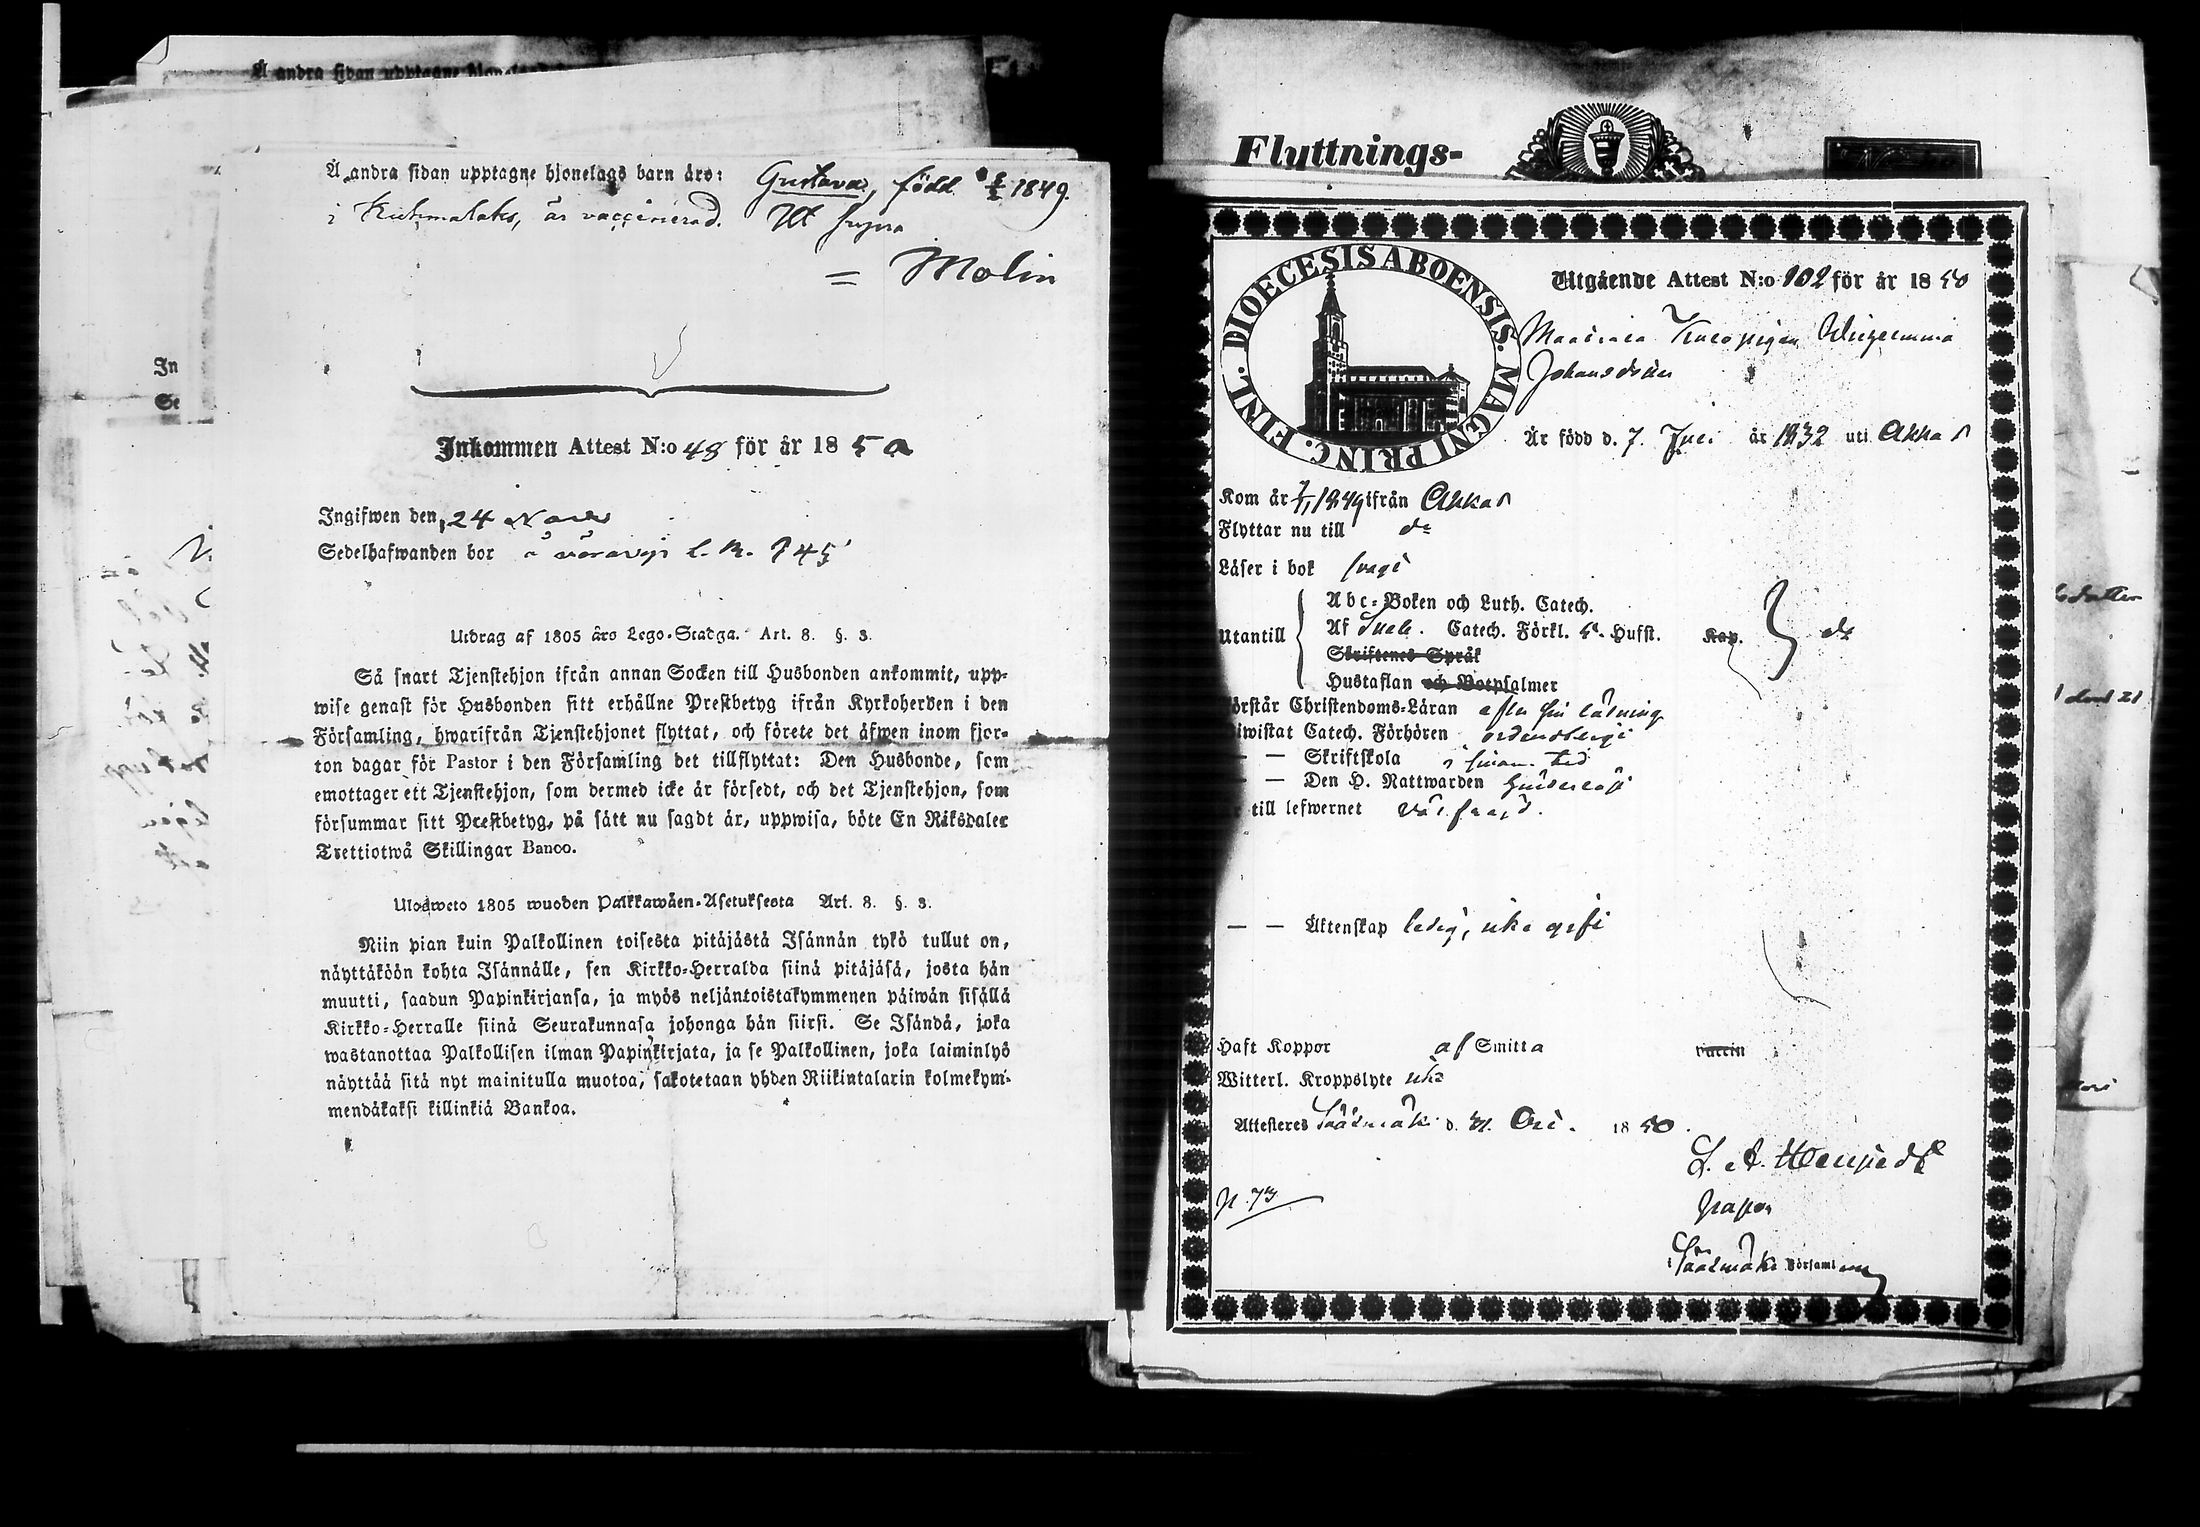 Å andra sidan upptagne hjonelags barn äro: Gustava, född 1849.
i Kuhmalaks, är vaccinerad. Ut supra
= Molin
Inkommen Attest N:o 48 för år 1850
Ingifwen den 24 Nov
Sedelhafwanden bor å
Utdrag af 1805 års Lego-Stadga. Art. 8. §. 3.
Så snart Tjenstehjon ifrån annan Socken till Husbonden ankommit, upp-
wise genast för Husbonden sitt erhållne Prestbetyg ifrån Kyrkoherden i den
Församling, hwarifrån Tjenstehjonet flyttat, och förete det äfwen inom fjor-
ton dagar för Pastor i den Församling det tillflyttat: Den Husbonde, som
emottager ett Tjenstehjon, som dermed icke är försedt, och det Tjenstehjon, som
försummar sitt Prestbetyg, på sätt nu sagdt är, uppwisa, böte En Riksdaler
Trettiotwå Skillingar Banco.
Ulosweto 1805 wuoden Palkkawäen-Asetuksesta Art. 8. §. 3.
Niin pian kuin Palkollinen toisesta pitäjästä Isännän tykö tullut on,
näyttäköön kohta Isännälle, sen Kirkko-Herralda siinä pitäjäsä, josta hän
muutti, saadun Papinkirjansa, ja myös neljäntoistakymmenen päiwän sisällä
Kirkko-Herralle siinä Seurakunnasa johonga hän siirsi. Se Isändä, joka
wastanottaa Palkollisen ilman Papinkirjata, ja se Palkollinen, joka laiminlyö
näyttää sitä nyt mainitulla muotoa, sakotetaan yhden Riikintalarin kolmekym-
mendäkaksi killinkiä Bankoa.
Flyttnings-
DIOECESIS ABOENSIS. MAGNI PRINC. FINL.
Utgående Attest N:o 102 för år 1850
Johansdotter
Är född d. 7. Juli år 1832 uti Akkas
Kom år 1849 ifrån Akkas
Flyttar nu till do
Läser i bok svagt
Utantill
Abc-Boken och Luth. Catech.
Af Sveb. Catech. Förkl. 5. Hufst. Kap. do
Skriftenes Språk
Hustaflan och Botpsalmer
örstår Christendoms-Läran efter sin läsning
iwistat Catech. Förhören ordentligt
— — Skriftskola i sinom tid
— — Den H. Nattwarden
till lefwernet väl frejd.
— — Äktenskap ledig, icke gift
Haft Koppor af Smitta vaccin
Witterl. Kroppslyte icke
Attesteres Sääksmäki d. 31. Oct. 1850.
Pastor
i Sääksmäki Församling